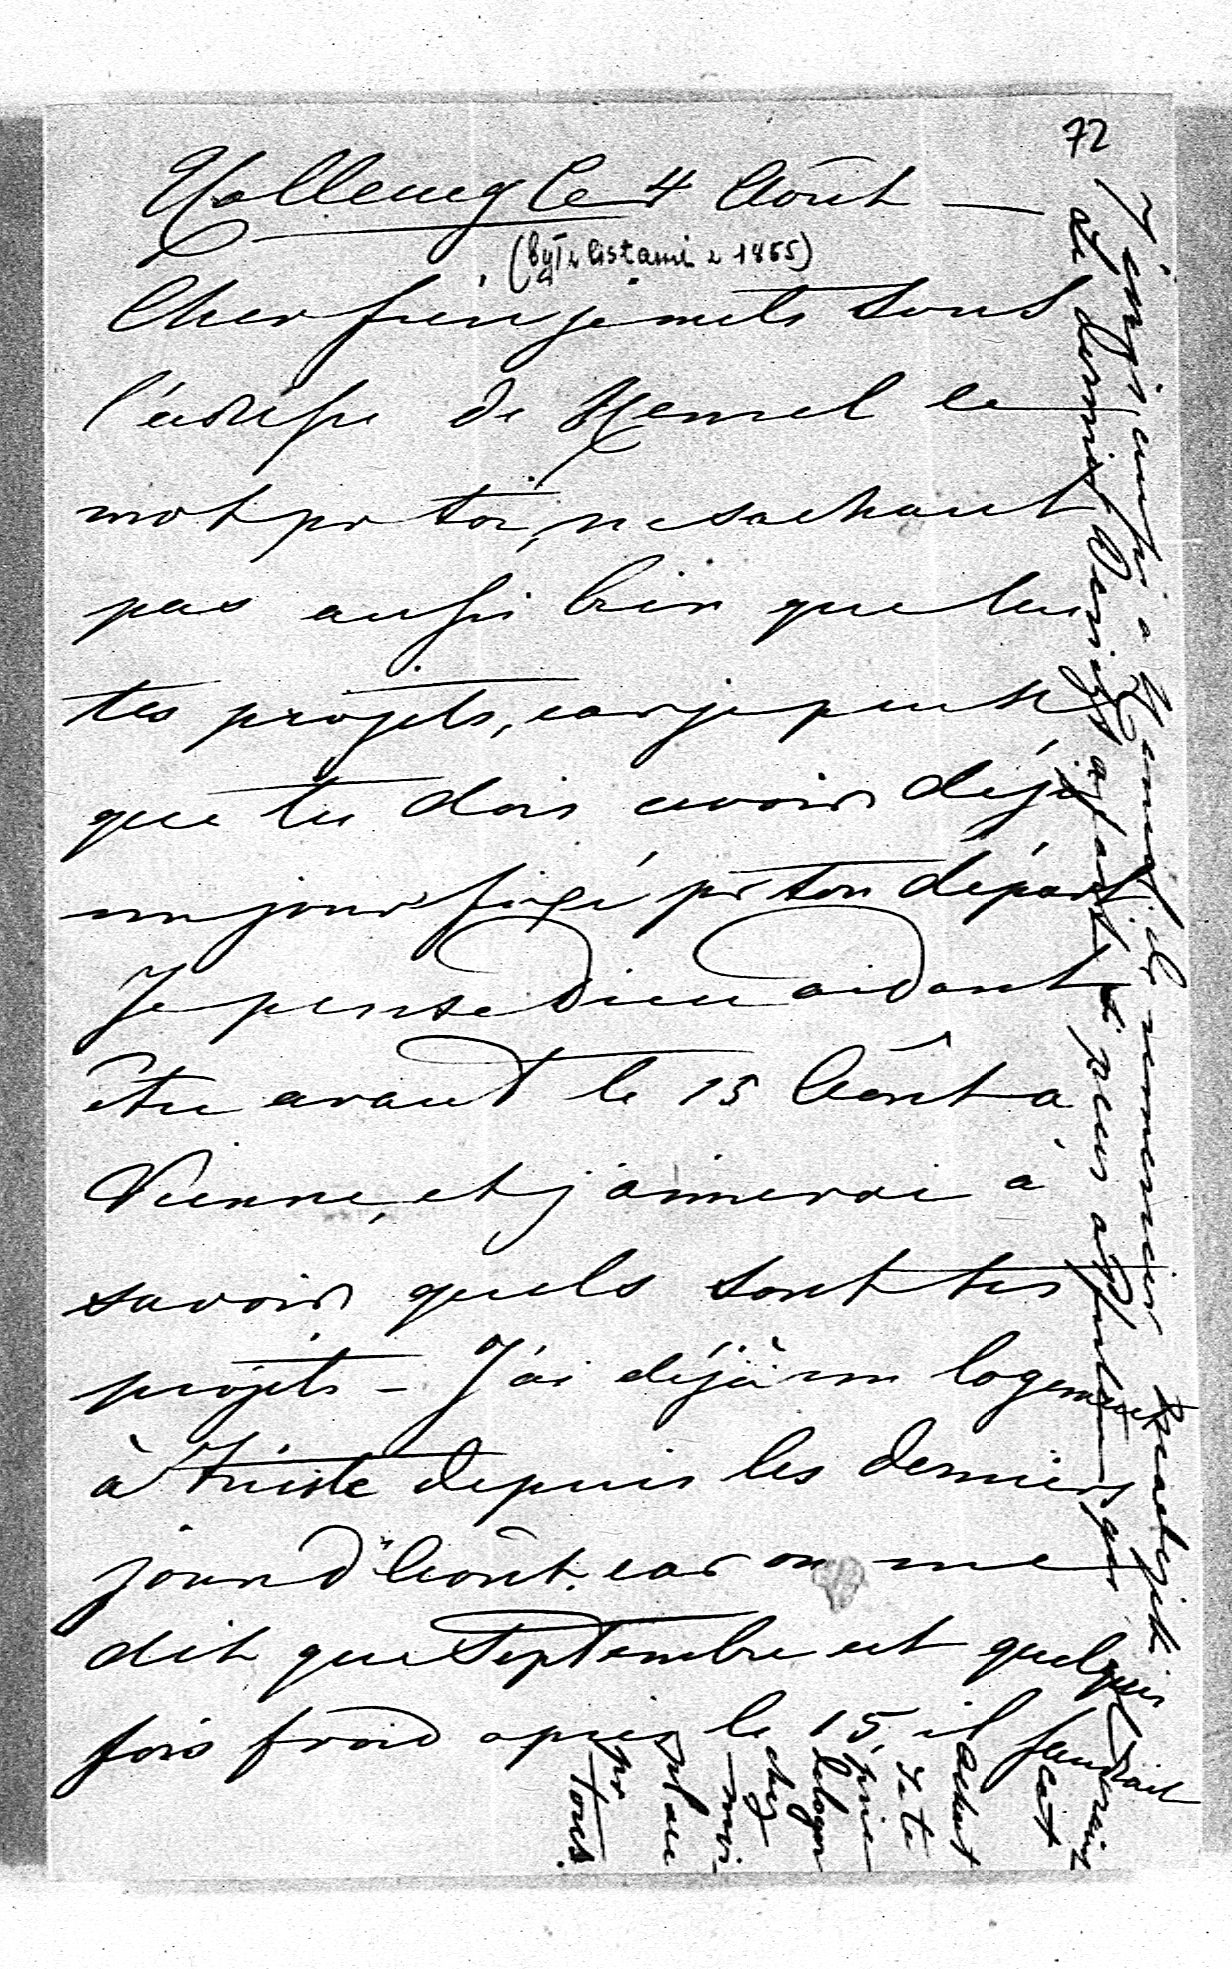 72
le 4 Août —
(był z listami z 1865)
Cher frère je mets sous
l'adresse de Kemel le
mot pr toi, ne sachant
pas aussi bien que lui
tes projets, car je pense
que tu dois avoir déjà
un jour fixé pr ton départ.
Je pense Dieu aidant
être avant le 15 Août a
Vienne, et j'aimerai à
savoir quels sont tes
projets — J'ai déjà un logement
à Trieste depuis les derniers
jours d'Août, car on me
dit que Septembre est quelque
fois froid apres le 15, il faudrait
J'écris aussi à
et peur
cet
Achat
de te
prie
loger
chez
moi
place
pr
tous.